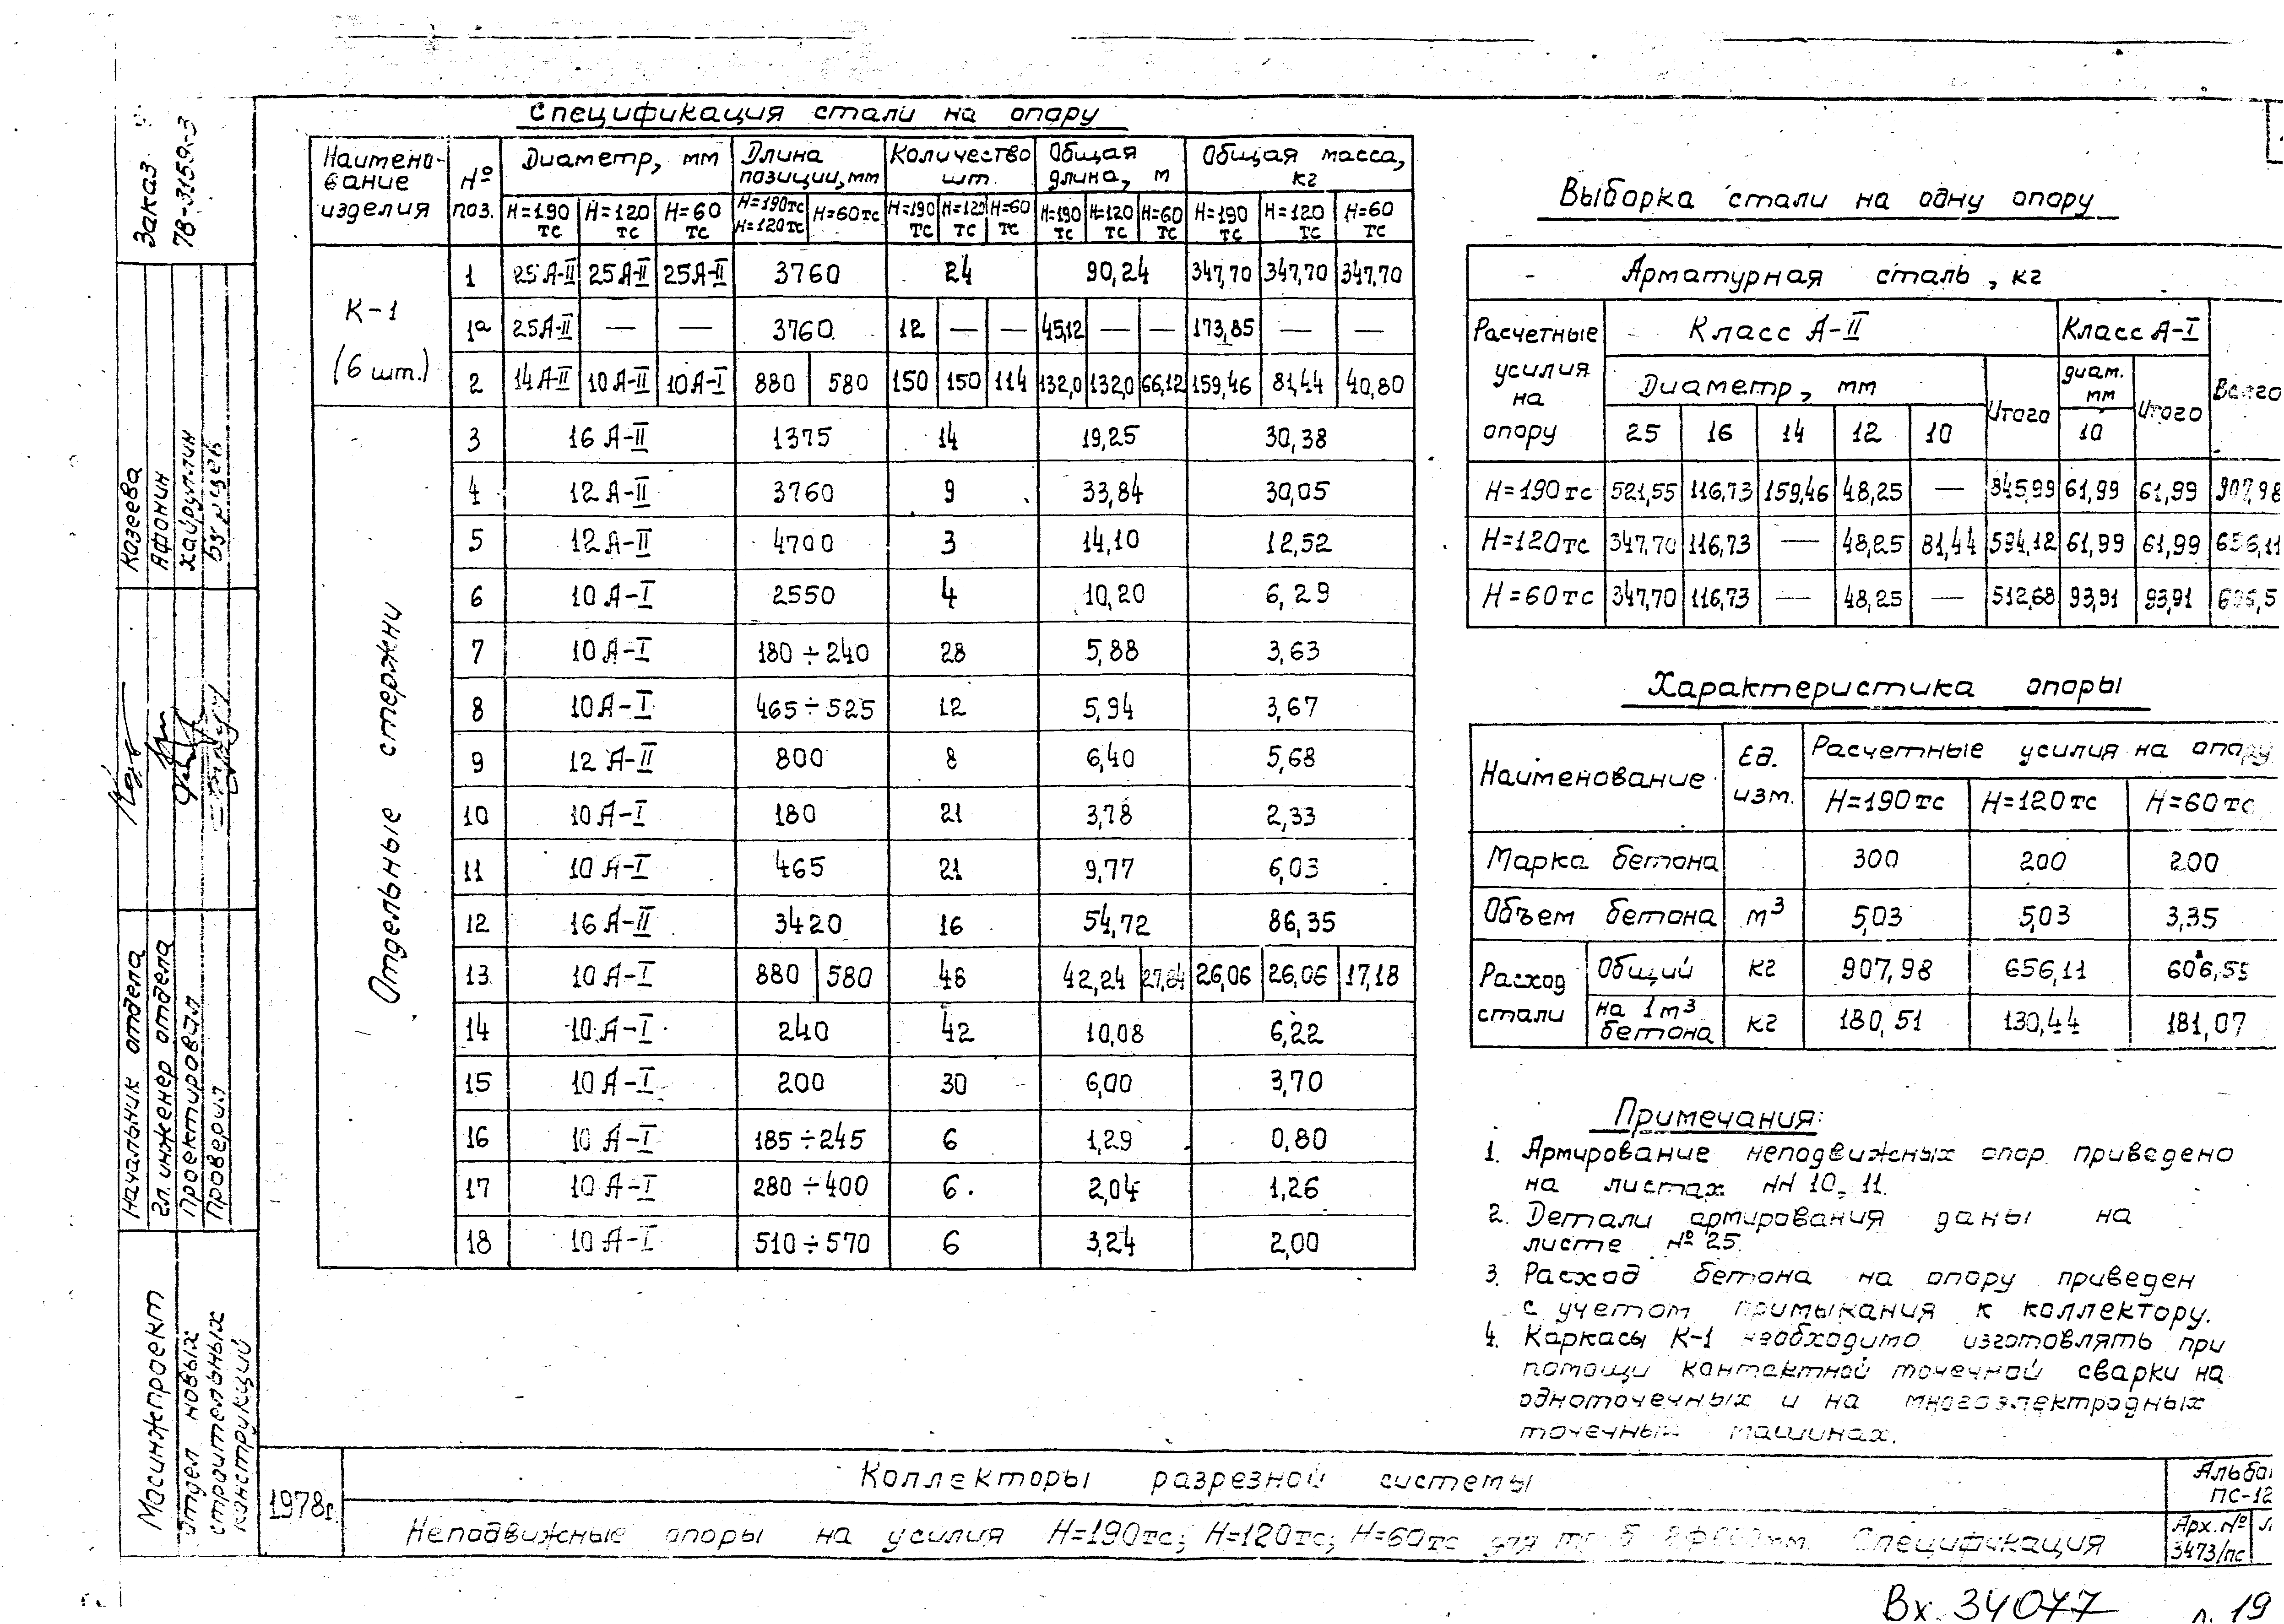 Спецификация стали на опору
Наимено-вание изделия | № поз. | Диаметр, мм | Длина позиции, мм | Количество шт. | Общая длина, м | Общая масса, кг
H=190 тс | H=120 тс | H=60 тс | H=190тс H=120тс | H=60тс | H=190 тс | H=120 тс | H=60 тс | H=190 тс | H=120 тс | H=60 тс | H=190 тс | H=120 тс | H=60 тс
К-1 (6 шт.)
1 | 25 А-II | 25 А-II | 25 А-II | 3760 | 24 | 90,24 | 347,70 | 347,70 | 347,70
1а | 25 А-II | — | — | 3760 | 12 | — | — | 45,12 | — | — | 173,85 | — | —
2 | 14 А-II | 10 А-II | 10 А-I | 880 | 580 | 150 | 150 | 114 | 132,0 | 132,0 | 66,12 | 159,46 | 81,44 | 40,80
Отдельные стержни
3 | 16 А-II | 1375 | 14 | 19,25 | 30,38
4 | 12 А-II | 3760 | 9 | 33,84 | 30,05
5 | 12 А-II | 4700 | 3 | 14,10 | 12,52
6 | 10 А-I | 2550 | 4 | 10,20 | 6,29
7 | 10 А-I | 180÷240 | 28 | 5,88 | 3,63
8 | 10 А-I | 465÷525 | 12 | 5,94 | 3,67
9 | 12 А-II | 800 | 8 | 6,40 | 5,68
10 | 10 А-I | 180 | 21 | 3,78 | 2,33
11 | 10 А-I | 465 | 21 | 9,77 | 6,03
12 | 16 А-II | 3420 | 16 | 54,72 | 86,35
13 | 10 А-I | 880 | 580 | 48 | 42,24 | 27,84 | 26,06 | 26,06 | 17,18
14 | 10 А-I | 240 | 42 | 10,08 | 6,22
15 | 10 А-I | 200 | 30 | 6,00 | 3,70
16 | 10 А-I | 185÷245 | 6 | 1,29 | 0,80
17 | 10 А-I | 280÷400 | 6 | 2,04 | 1,26
18 | 10 А-I | 510÷570 | 6 | 3,24 | 2,00
Выборка стали на одну опору
Арматурная сталь, кг
Расчетные усилия на опору | Класс А-II | Класс А-I | Всего
Диаметр, мм | Итого | диам. мм | Итого
25 | 16 | 14 | 12 | 10 | 10
H=190тс | 521,55 | 116,73 | 159,46 | 48,25 | — | 845,99 | 61,99 | 61,99 | 907,98
H=120тс | 347,70 | 116,73 | — | 48,25 | 81,44 | 594,12 | 61,99 | 61,99 | 656,11
H=60тс | 347,70 | 116,73 | — | 48,25 | — | 512,68 | 93,91 | 93,91
Характеристика опоры
Наименование | Ед. изм. | Расчетные усилия на опору
H=190тс | H=120тс | H=60тс
Марка бетона | 300 | 200 | 200
Объем бетона | м³ | 5,03 | 5,03 | 3,35
Расход стали | Общий | кг | 907,98 | 656,11 | 606,59
на 1м³ бетона | кг | 180,51 | 130,44 | 181,07
Примечания:
1. Армирование неподвижных опор приведено
на листах НН 10, 11.
2. Детали армирования даны на
листе № 25.
3. Расход бетона на опору приведен
с учетом примыкания к коллектору.
4. Каркасы К-1 необходимо изготовлять при
помощи контактной точечной сварки на
одноточечных и на многоэлектродных
точечных машинах.
Заказ
78-3159-3
Козеева
Афонин
Хайруллин
Начальник отдела
Гл. инженер отдела
Проектировал
Проверил
Мосинжпроект
Отдел новых
строительных
конструкций
1978г.
Коллекторы разрезной системы
Неподвижные опоры на усилия H=190тс; H=120тс; H=60тс для труб 2ф600мм. Спецификация
Альбо
ПС-12
Арх. №
3473/пс
Вх. 34077
л. 19